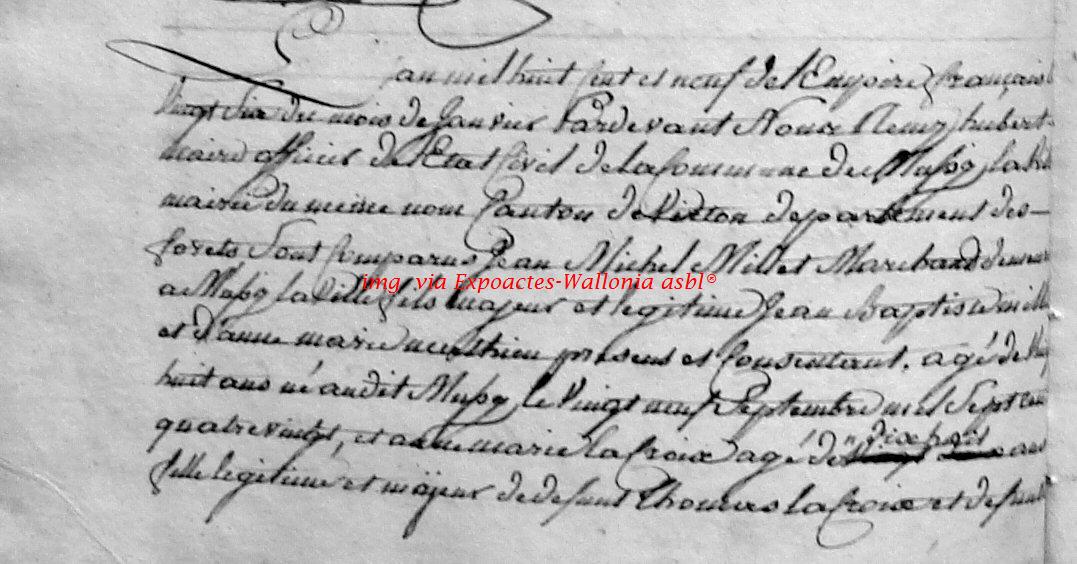 an mil huit Cent et neuf de l'Empire français
Vingt Six du mois de Janvier Pardevant Nous Remy hubert
maire officier de l'Etat Civil de la Commune de Mussy la Ville
mairie du meme nom Canton de Virton departement des
forets Sont Comparus Jean Michel Millet Marchand demeurant
img via Expoactes-Wallonia asbl®
a Mussy la Ville fils majeur et legitime Jean Baptiste mill
et d'anne marie present et Consentant. agé de Vingt
huit ans né audit Mussy le Vingt neuf Septembre mil Sept cent
quatre vingt, et anne marie la Croix agé de dix huit ans
fille legitime et majeur de defunt Thomas la Croix et defunte